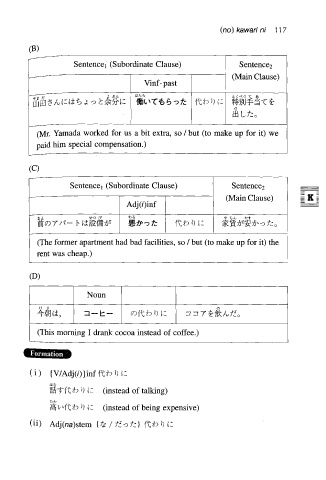 (no) kawari ni 117
(B)
Sentence₁ (Subordinate Clause) Sentence₂
(Main Clause)
Vinf·past
山田さんにはちょっと余分に 働いてもらった 代わりに 特別手当てを
出した。
(Mr. Yamada worked for us a bit extra, so / but (to make up for it) we
paid him special compensation.)
(C)
Sentence₁ (Subordinate Clause) Sentence₂
(Main Clause)
Adj(i)inf
前のアパートは設備が 悪かった 代わりに 家賃が安かった。
(The former apartment had bad facilities, so / but (to make up for it) the
rent was cheap.)
K
(D)
Noun
今朝は、 コーヒー の代わりに ココアを飲んだ。
(This morning I drank cocoa instead of coffee.)
Formation
(i) {V/Adj(i)}inf 代わりに
話す代わりに (instead of talking)
高い代わりに (instead of being expensive)
(ii) Adj(na)stem {な / だった} 代わりに